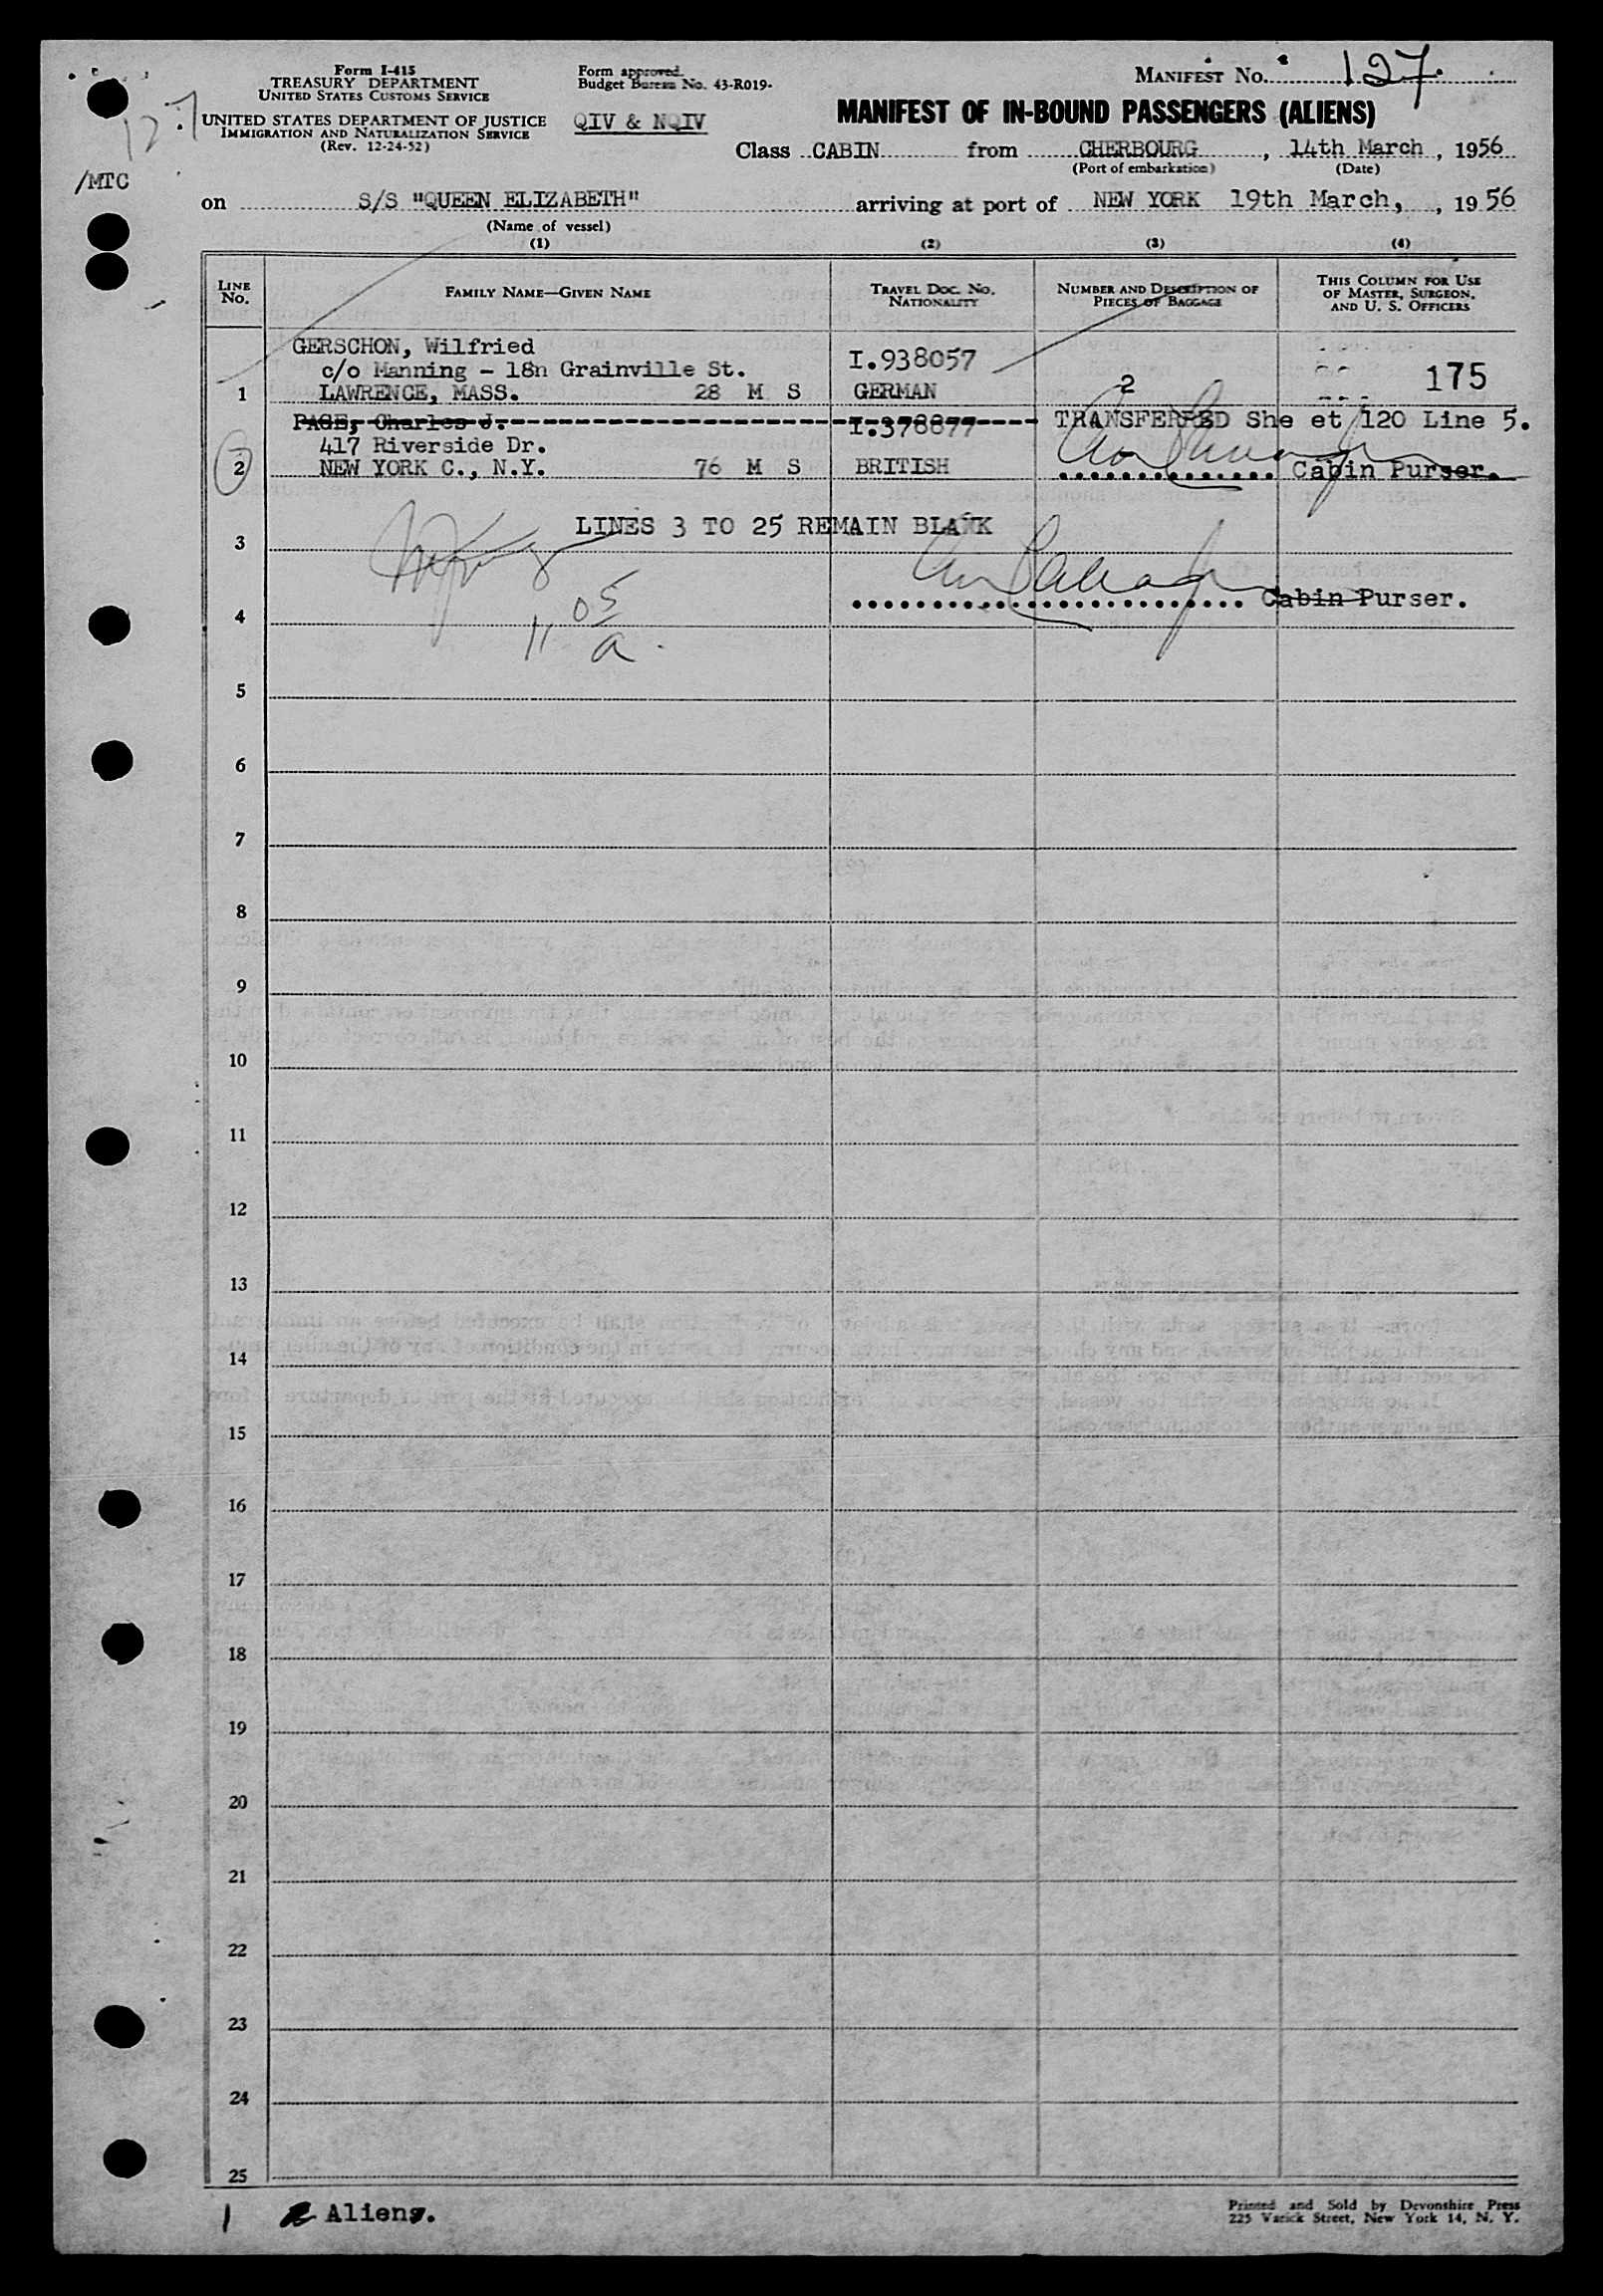 Form I-415
TREASURY DEPARTMENT
UNITED STATES CUSTOMS SERVICE
UNITED STATES DEPARTMENT OF JUSTICE
IMMIGRATION AND NATURALIZATION SERVICE
(Rev. 12-24-52)
Form approved.
Budget Bureau No. 43-R019-
QIV & NQIV
MANIFEST No. 127.
127
MANIFEST OF IN-BOUND PASSENGERS (ALIENS)
Class CABIN from CHERBOURG, 14th March, 1956
(Port of embarkation) (Date)
/MTC
on S/S "QUEEN ELIZABETH" arriving at port of NEW YORK 19th March, , 1956
(Name of vessel)
(1) (2) (3) (4)
LINE No. FAMILY NAME—GIVEN NAME TRAVEL DOC. NO. NATIONALITY NUMBER AND DESCRIPTION OF PIECES OF BAGGAGE THIS COLUMN FOR USE OF MASTER, SURGEON, AND U. S. OFFICERS
GERSCHON, Wilfried I.938057
c/o Manning - 18n Grainville St.
1 LAWRENCE, MASS. 28 M S GERMAN 2 175
PAGE, Charles J. I.378877 TRANSFERRED She et 120 Line 5.
417 Riverside Dr.
2 NEW YORK C., N.Y. 76 M S BRITISH Cabin Purser.
LINES 3 TO 25 REMAIN BLANK
3
Cabin Purser.
4
11 05 a.
5
6
7
8
9
10
11
12
13
14
15
16
17
18
19
20
21
22
23
24
25
1 Aliens.
Printed and Sold by Devonshire Press
225 Varick Street, New York 14, N. Y.